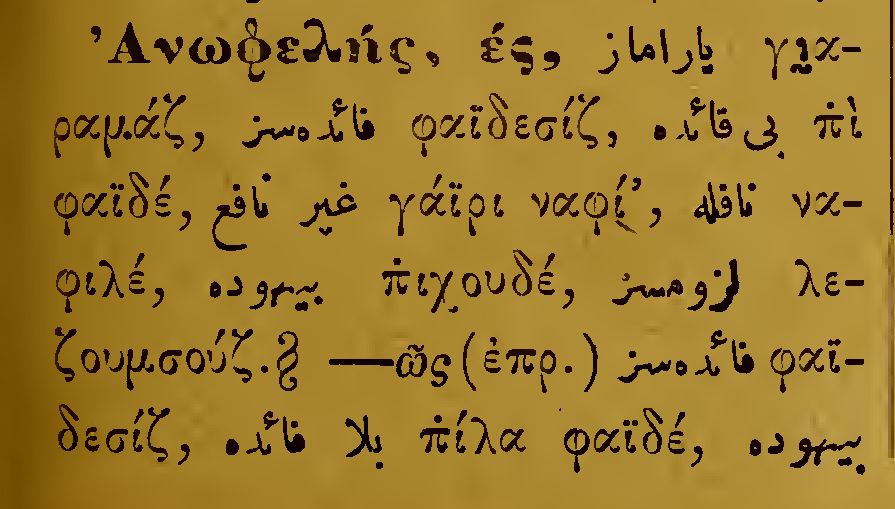 Ἀνωφελής, ές, ياراماز γι̤α-
ραμάζ, فائده‌سز φαϊδεσίζ, بی فائده π̇ὶ
φαϊδέ, غیر نافع γάϊρι ναφί’, نافله να-
φιλέ, بیهوده π̇ιχ̣ουδέ, لزومسز λε-
ζουμσούζ.§ —ῶς (ἐπρ.) فائده‌سز φαϊ-
δεσίζ, بلا فائده π̇ίλα φαϊδέ, بیهوده